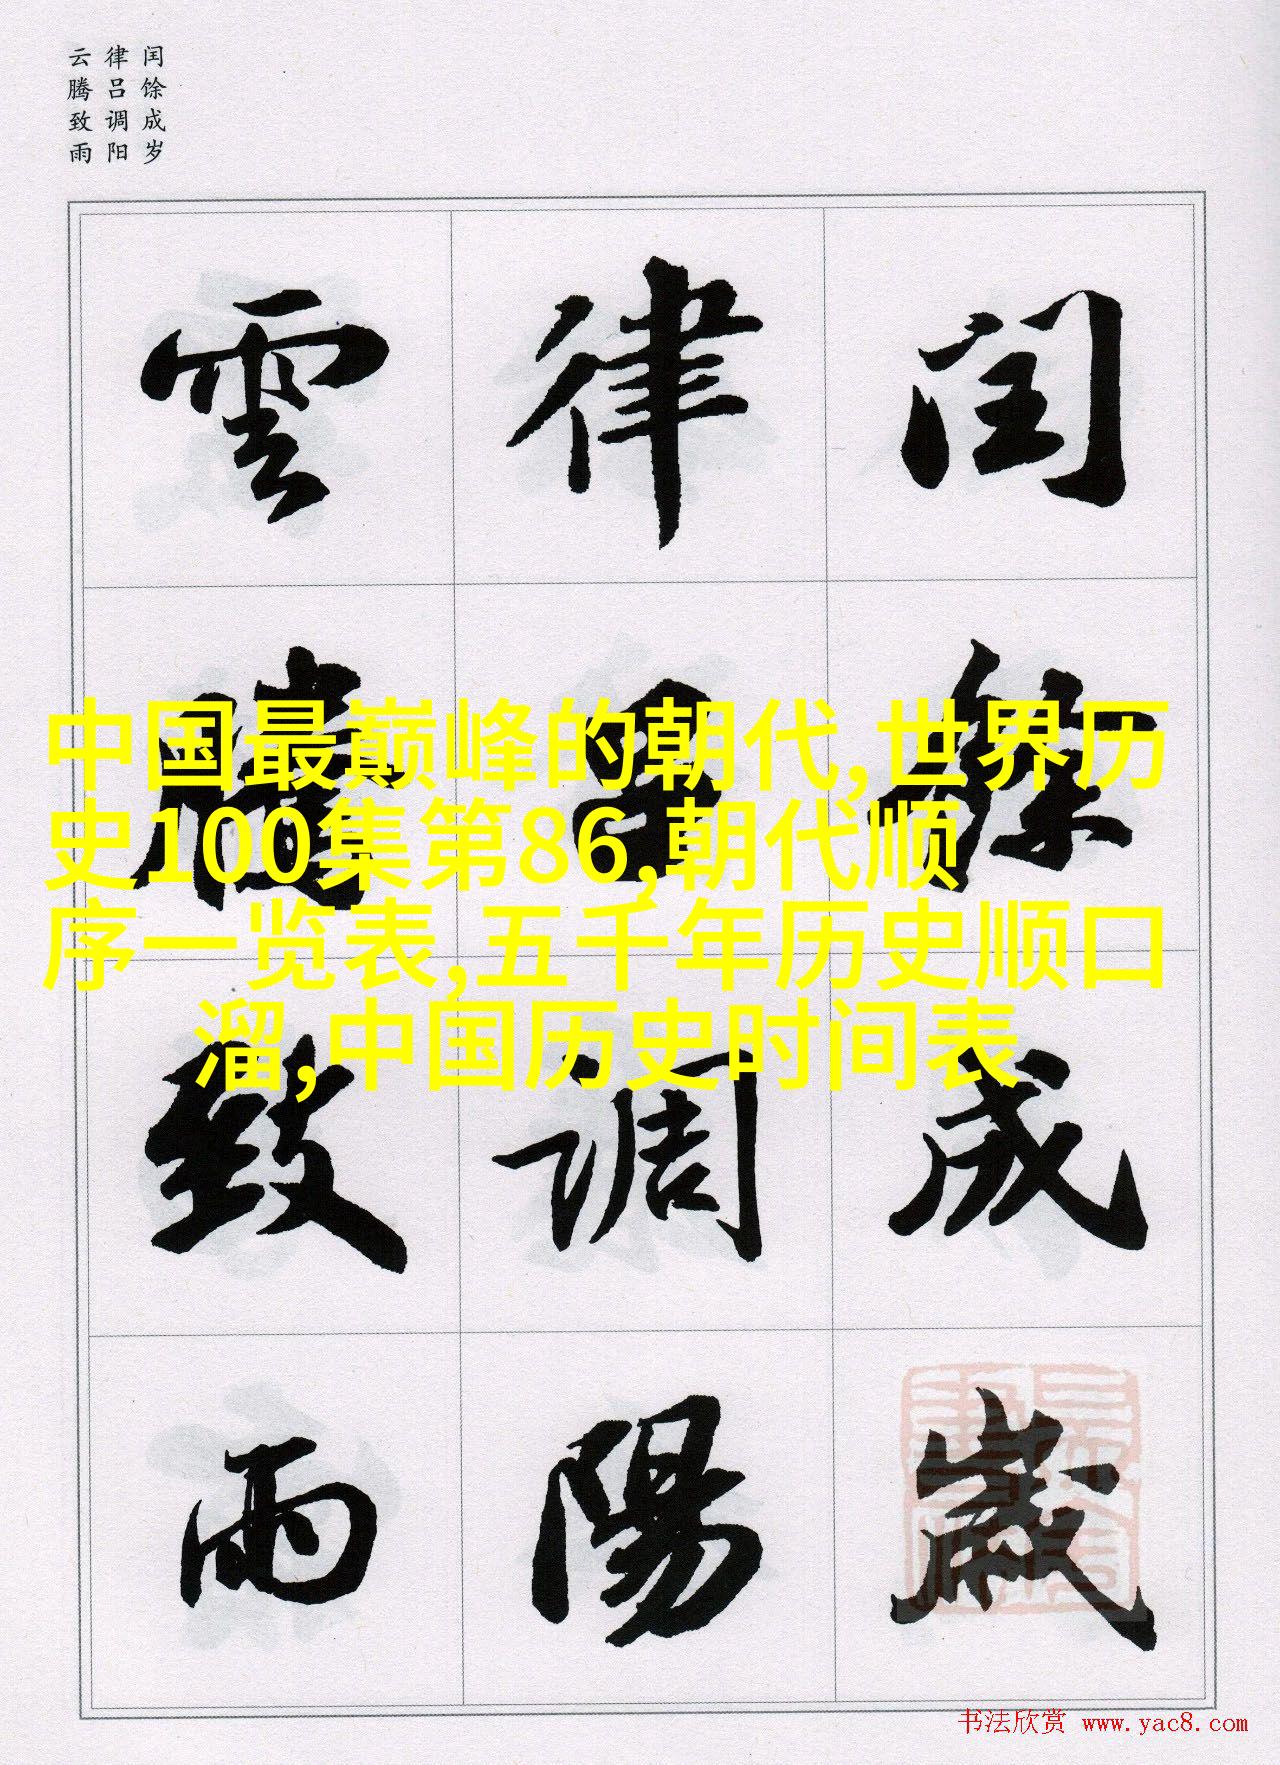 闰馀成岁
律吕调阳
云腾致雨
閏餘成歲
律吕調陽
雲騰致雨
中国最巅峰的朝代,世界历
史100集第86,朝代顺
序一览表,五千年历史顺口
溜,中国历史时间表
书法欣赏 www.yac8.com